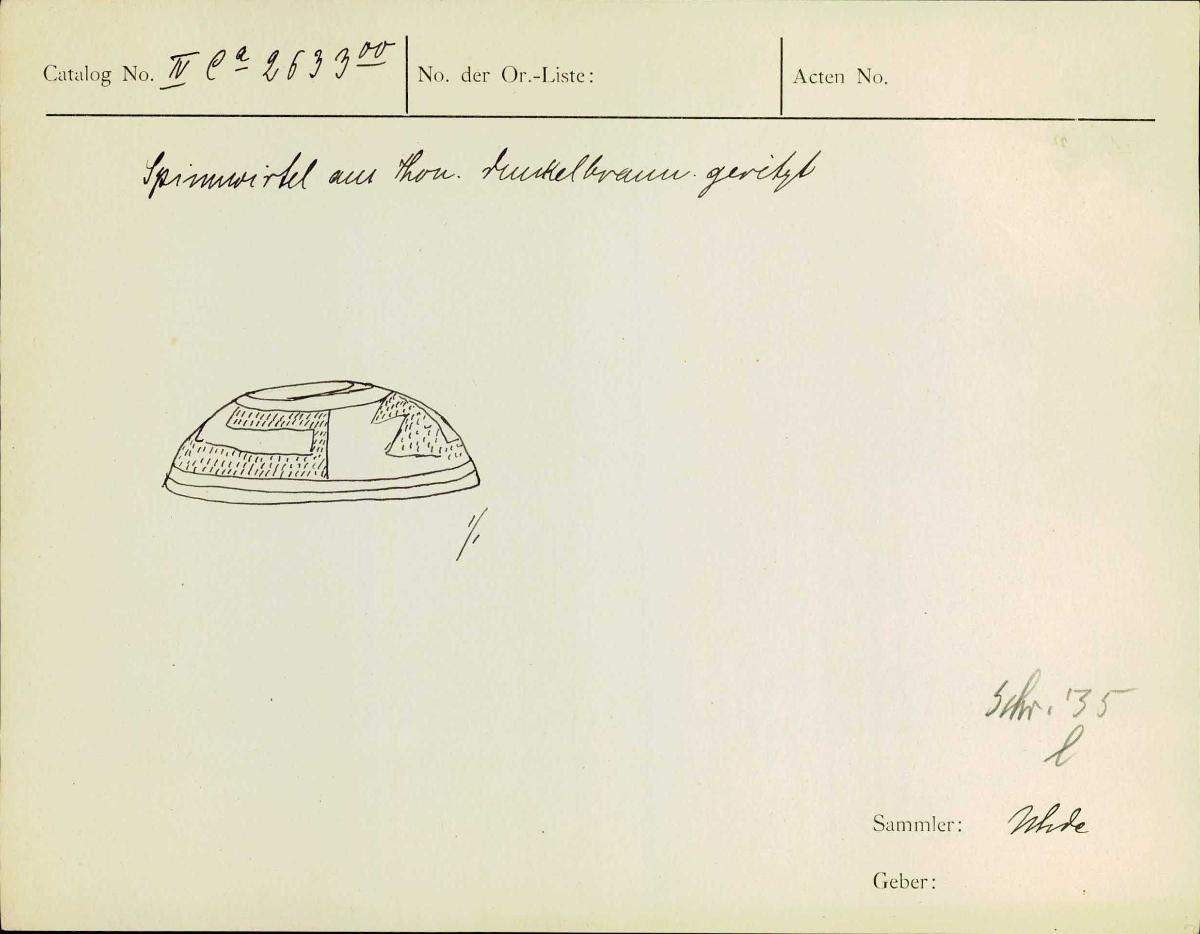 Catalog No. IV Ca 263300
No. der Or.-Liste:
Acten No.
Spinnwirtel aus Thon. dunkelbraun. geritzt
1/1
Schr. '35
l
Sammler: Uhde
Geber: